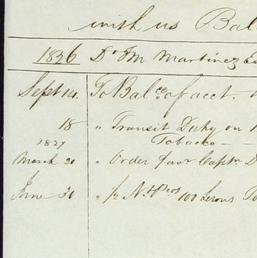 with us Bal
1836 Dr M Martinez
Sept 14. To Balce of acct.
18 " Transit Duty on
Tobacco
1837
March 20 " Order favr Captn D
June 30 " pr 100 Serons To